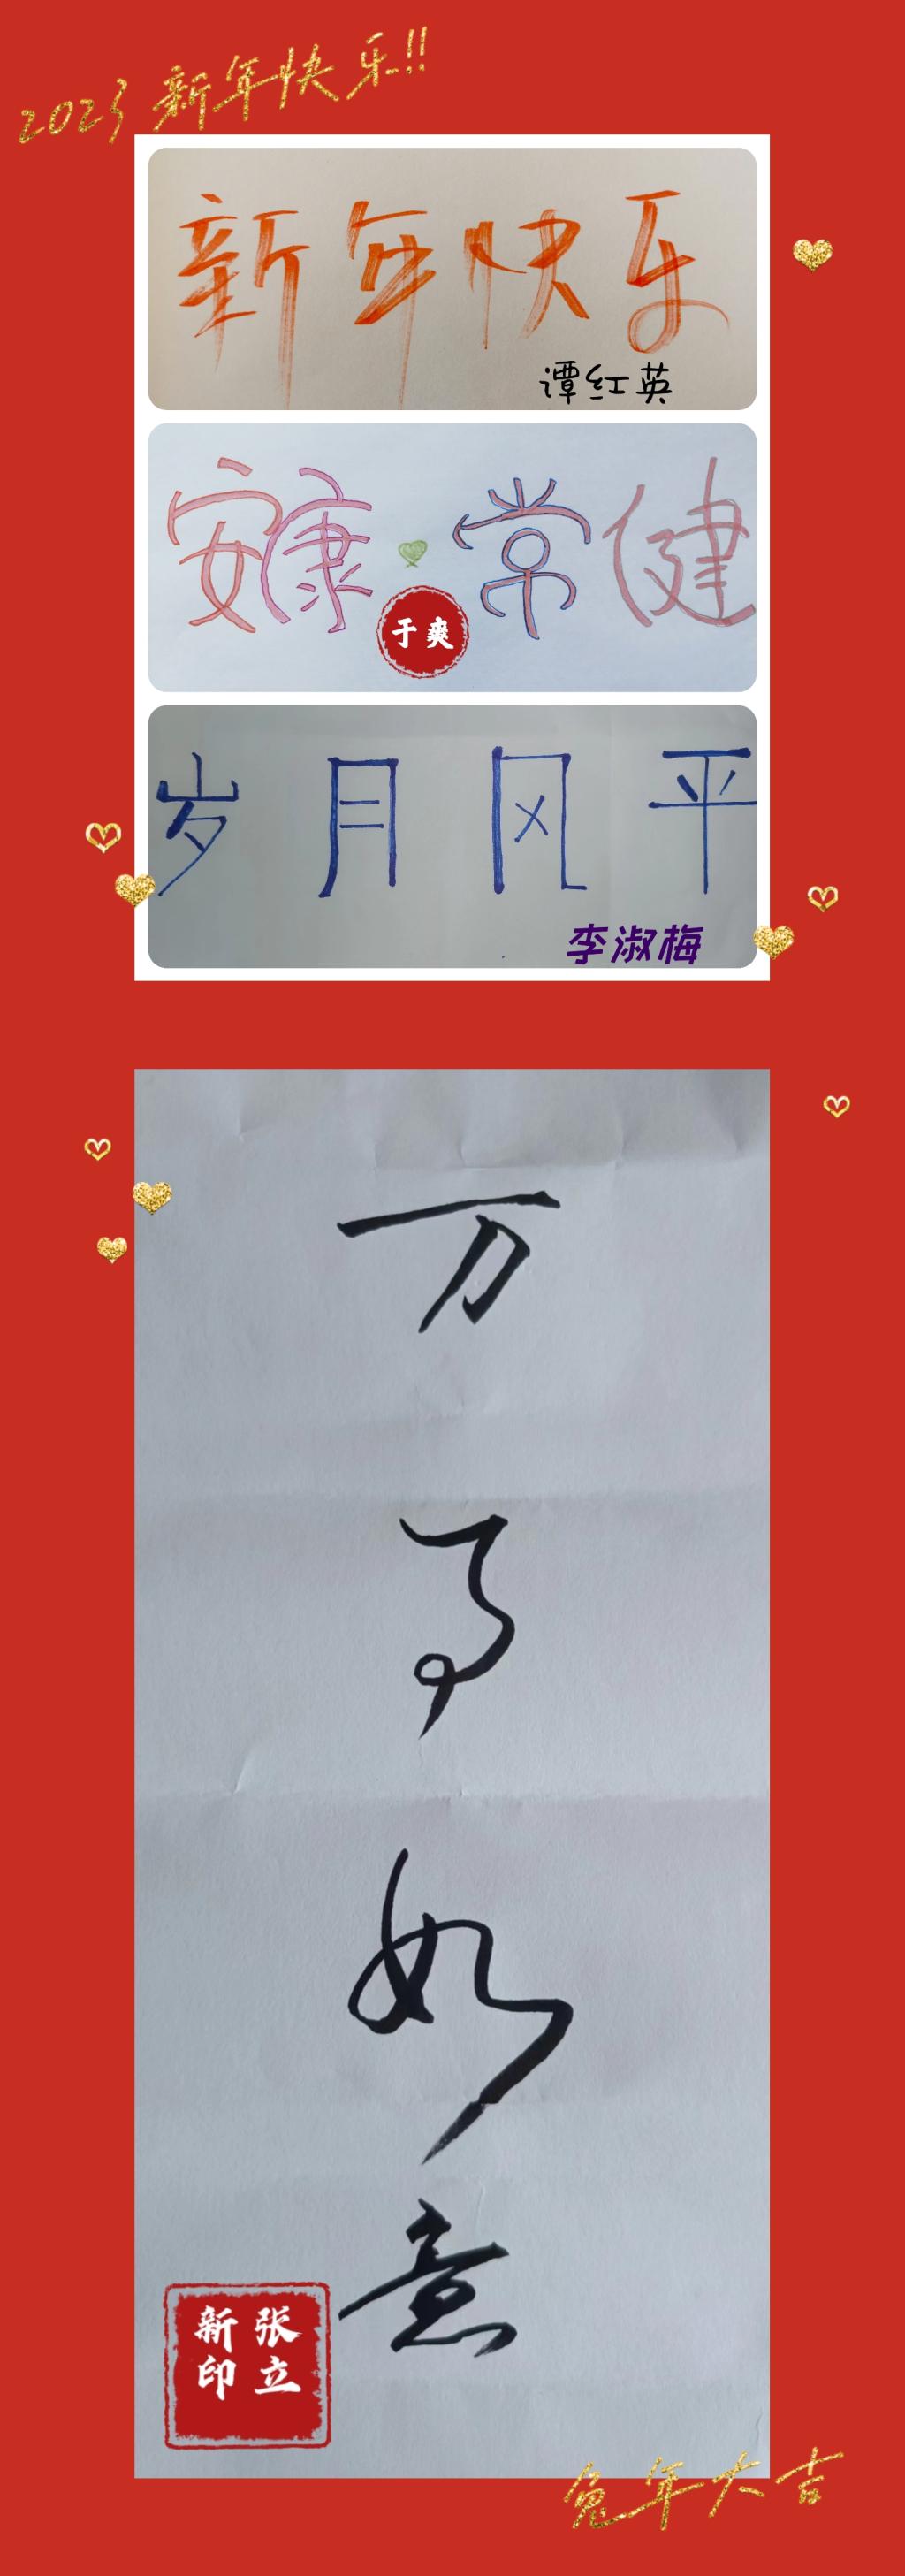 2023 新年快乐!!
新年快乐
谭红英
安康 常健
于爽
岁月风平
李淑梅
万
事
如
意
张立
新印
兔年大吉